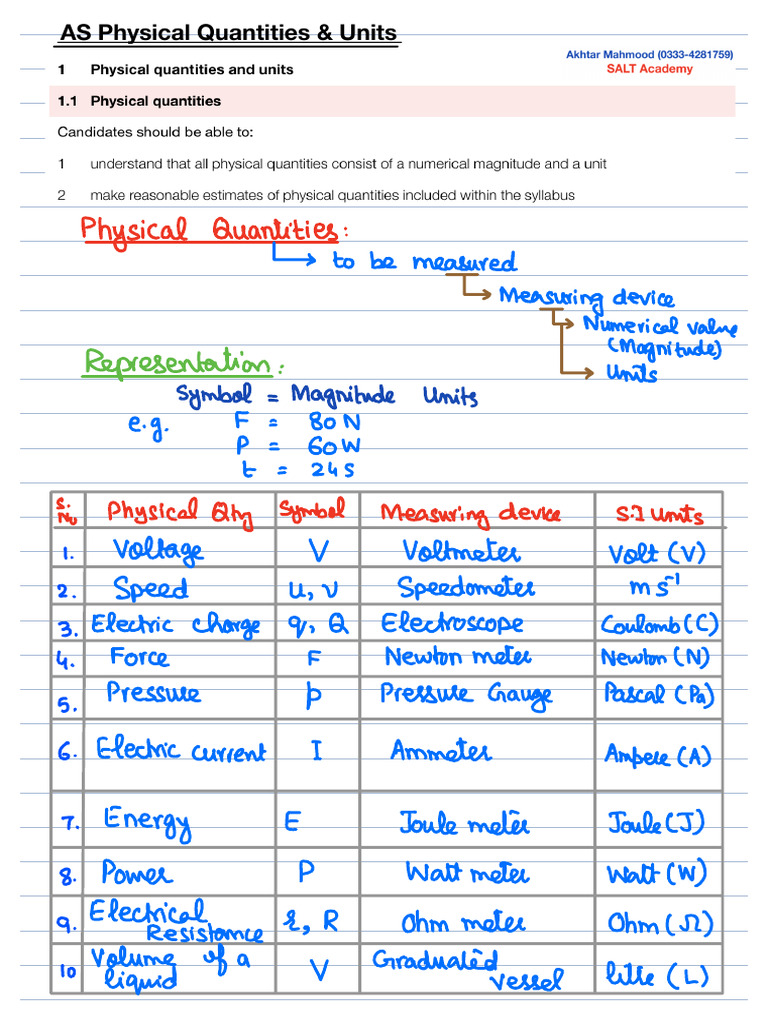 AS Physical Quantities & Units
Akhtar Mahmood (0333-4281759)
SALT Academy
1 Physical quantities and units
1.1 Physical quantities
Candidates should be able to:
1 understand that all physical quantities consist of a numerical magnitude and a unit
2 make reasonable estimates of physical quantities included within the syllabus
Physical Quantities:
to be measured
Measuring device
Numerical value
(Magnitude)
Units
Representation:
Symbol = Magnitude Units
e.g. F = 80 N
P = 60 W
t = 24 s
S. No Physical Qty Symbol Measuring device S.I Units
1. Voltage V Voltmeter Volt (V)
2. Speed u, v Speedometer m s⁻¹
3. Electric charge q, Q Electroscope Coulomb (C)
4. Force F Newton meter Newton (N)
5. Pressure p Pressure Gauge Pascal (Pa)
6. Electric current I Ammeter Ampere (A)
7. Energy E Joule meter Joule (J)
8. Power P Watt meter Watt (W)
9. Electrical Resistance r, R Ohm meter Ohm (Ω)
10 Volume of a liquid V Graduated vessel litre (L)